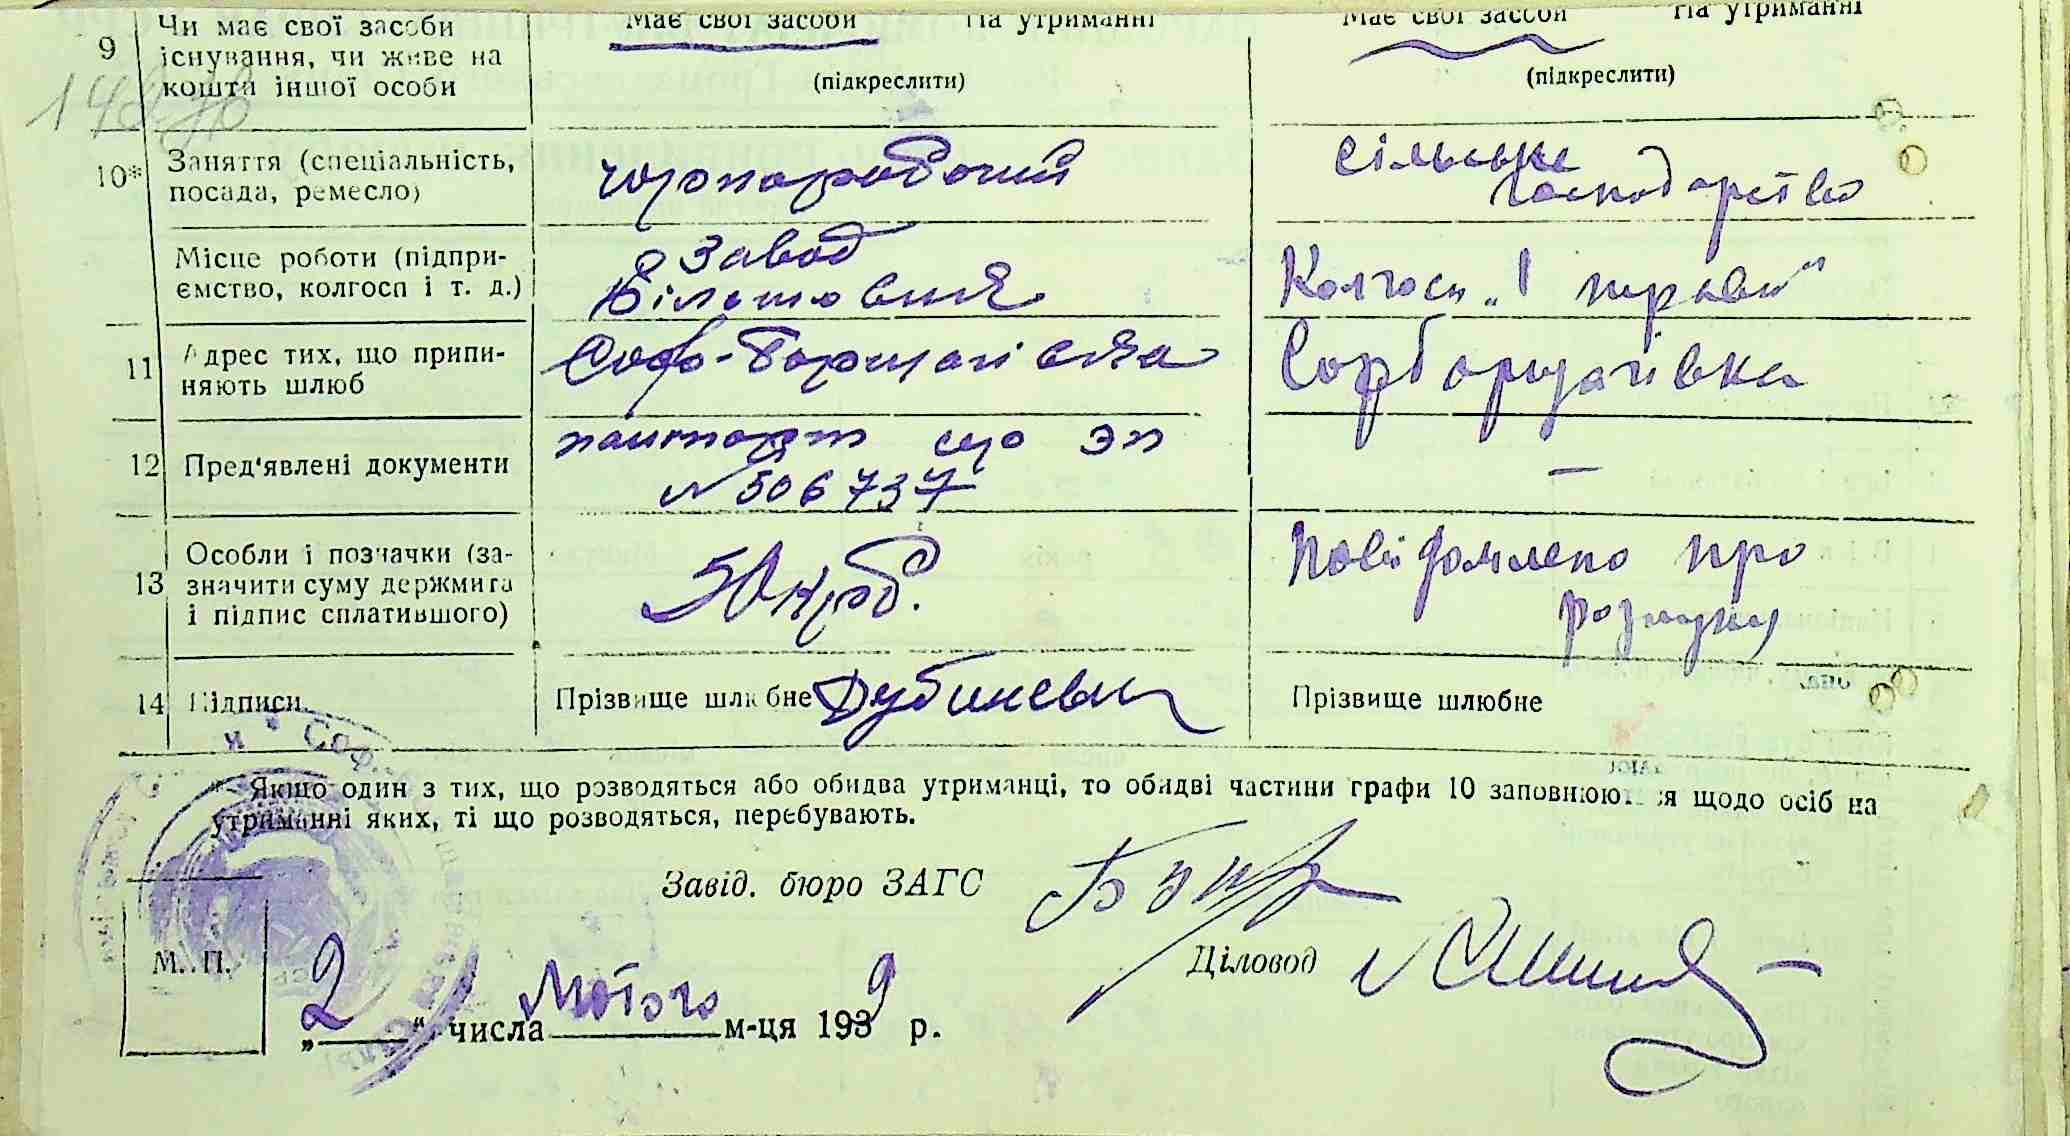 Має свої засоби На утриманні Має свої засоби На утриманні
9 Чи має свої засоби
існування, чи живе на
кошти іншої особи
(підкреслити) (підкреслити)
10* Заняття (спеціальність,
посада, ремесло)
чорноробочий
сільське
господарство
Місце роботи (підпри-
ємство, колгосп і т. д.)
Завод
Більшовик
Колгосп „1 травня"
11 Адрес тих, що припи-
няють шлюб
Соф-Борщагівка Софборщагівка
12 Пред'явлені документи
паспорт ЭП
№ 506737
—
13 Особливі позначки (за-
значити суму держмита
і підпис сплатившого)
50 крб.
Повідомлено про
розлуку
14 Підписи. Прізвище шлюбне Дубиневич Прізвище шлюбне
* Якщо один з тих, що розводяться або обидва утриманці, то обидві частини графи 10 заповнюються щодо осіб на
утриманні яких, ті що розводяться, перебувають.
Завід. бюро ЗАГС
Діловод
М. П.
„2" числа Лютого м-ця 1939 р.